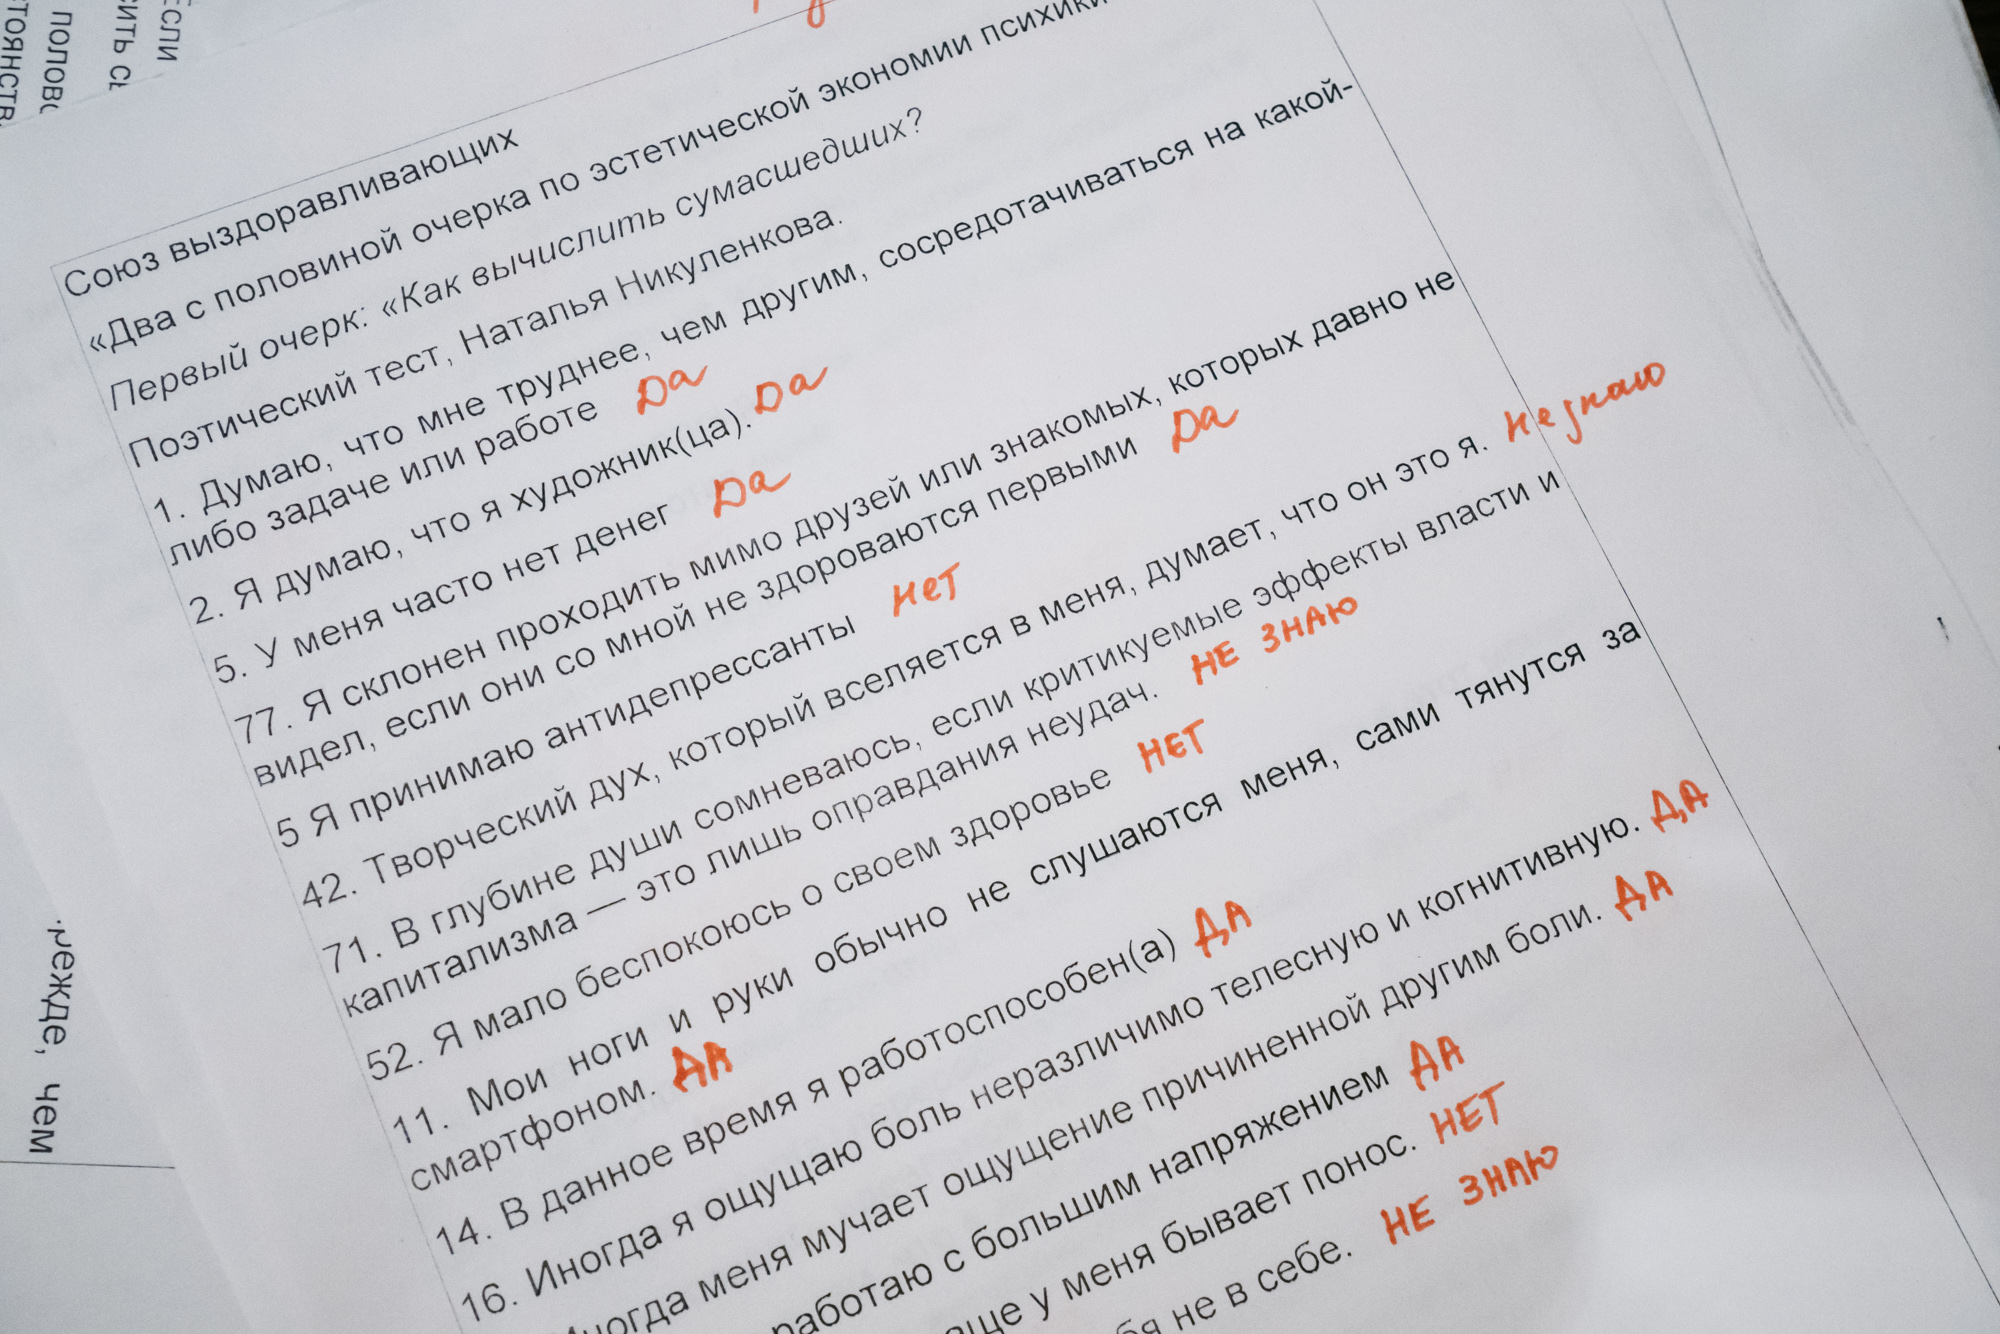 Союз выздоравливающих
«Два с половиной очерка по эстетической экономии психики
Первый очерк: «Как вычислить сумасшедших?
Поэтический тест, Наталья Никуленкова.
1. Думаю, что мне труднее, чем другим, сосредотачиваться на какой-
либо задаче или работе Да
2. Я думаю, что я художник(ца). Да
5. У меня часто нет денег Да
77. Я склонен проходить мимо друзей или знакомых, которых давно не
видел, если они со мной не здороваются первыми Да
5 Я принимаю антидепрессанты нет
42. Творческий дух, который вселяется в меня, думает, что он это я. Не знаю
71. В глубине души сомневаюсь, если критикуемые эффекты власти и
капитализма — это лишь оправдания неудач. НЕ ЗНАЮ
52. Я мало беспокоюсь о своем здоровье НЕТ
11. Мои ноги и руки обычно не слушаются меня, сами тянутся за
смартфоном. ДА
14. В данное время я работоспособен(а) ДА
16. Иногда я ощущаю боль неразличимо телесную и когнитивную. ДА
Иногда меня мучает ощущение причиненной другим боли. ДА
работаю с большим напряжением ДА
у меня бывает понос. НЕТ
не в себе. НЕ ЗНАЮ
если
сить
полов
чем